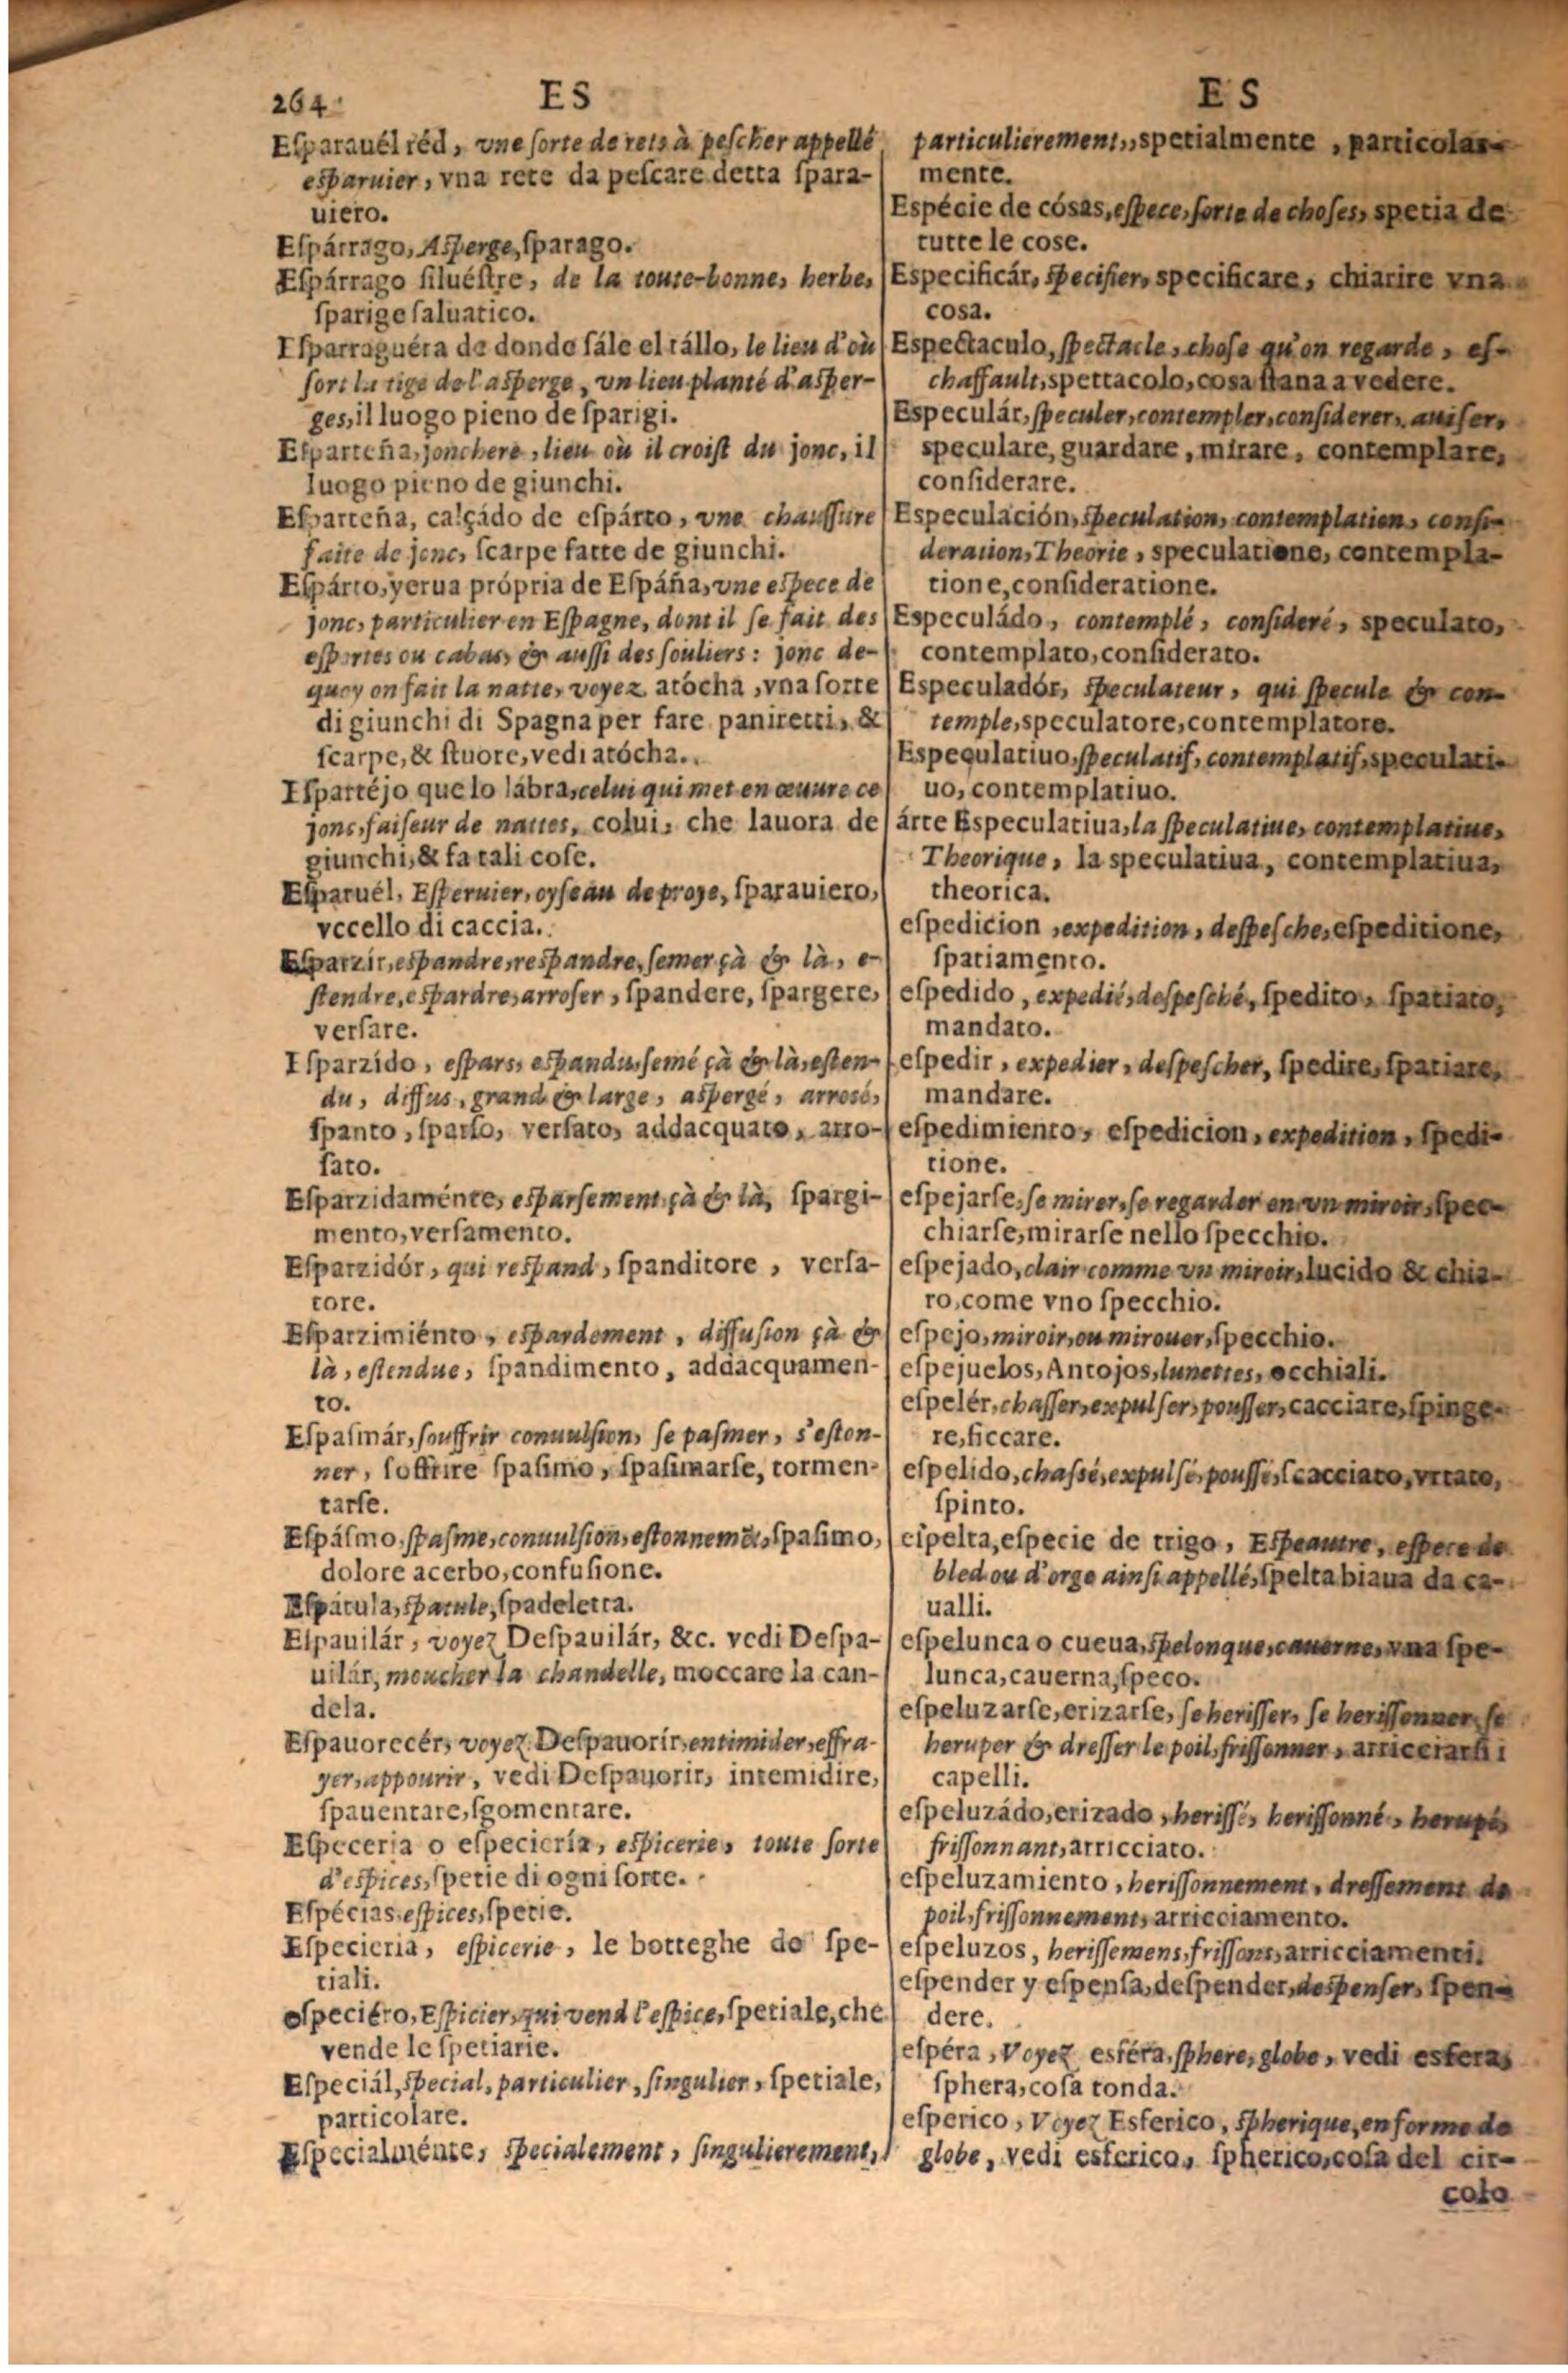 264
ES
Eſparauél réd, vne ſorte de rets à peſcher appellé
eſparuier, vna rete da peſcare detta ſpara-
uiero.
Eſpárrago, Aſperge, ſparago.
Eſpárrago ſiluéſtre, de la toute-bonne, herbe,
ſparige ſaluatico.
Eſparraguéra de donde ſále el tállo, le lieu d'où
ſort la tige de l'aſperge, vn lieu planté d'aſper-
ges, il luogo pieno de ſparigi.
Eſparteña, jonchere, lieu où il croiſt du jonc, il
luogo pieno de giunchi.
Eſparteña, calçádo de eſpárto, vne chauſſure
faite de jonc, ſcarpe fatte de giunchi.
Eſpárto, yerua própria de Eſpáña, vne eſpece de
jonc, particulier en Eſpagne, dont il ſe fait des
eſportes ou cabas, & auſſi des ſouliers: jonc de-
quoy on fait la natte, voyez atócha, vna ſorte
di giunchi di Spagna per fare paniretti, &
ſcarpe, & ſtuore, vedi atócha.
Eſpartéjo que lo lábra, celui qui met en œuure ce
jonc, faiſeur de nattes, colui, che lauora de
giunchi, & fa tali coſe.
Eſparuél, Eſperuier, oyſeau de proye, ſparauiero,
vccello di caccia.
Eſparzir, eſpandre, reſpandre, ſemer çà & là, e-
ſtendre, eſpardre, arroſer, ſpandere, ſpargere,
verſare.
Eſparzido, eſpars, eſpandu, ſemé çà & là, eſten-
du, diffus, grand & large, aſpergé, arrosé,
ſpanto, ſparſo, verſato, addacquato, arro-
ſato.
Eſparzidaménte, eſparſement çà & là, ſpargi-
mento, verſamento.
Eſparzidór, qui reſpand, ſpanditore, verſa-
tore.
Eſparzimiénto, eſpardement, diffuſion çà &
là, eſtendue, ſpandimento, addacquamen-
to.
Eſpaſmár, ſouffrir conuulſion, ſe paſmer, s'eſton-
ner, ſoffrire ſpaſimo, ſpaſimarſe, tormen-
tarſe.
Eſpáſmo, ſpaſme, conuulſion, eſtonnemẽt, ſpaſimo,
dolore acerbo, confuſione.
Eſpátula, ſpatule, ſpadeletta.
Eſpauilár, voyez Deſpauilár, &c. vedi Deſpa-
uilár, moucher la chandelle, moccare la can-
dela.
Eſpauorecér, voyez Deſpauorír, entimider, effra-
yer, appourir, vedi Deſpauorir, intemidire,
ſpauentare, ſgomentare.
Eſpeceria o eſpeciería, eſpicerie, toute ſorte
d'eſpices, ſpetie di ogni ſorte.
Eſpécias, eſpices, ſpetie.
Eſpecieria, eſpicerie, le botteghe de ſpe-
tiali.
eſpeciéro, Eſpicier, qui vend l'eſpice, ſpetiale, che
vende le ſpetiarie.
Eſpeciál, ſpecial, particulier, ſingulier, ſpetiale,
particolare.
Eſpecialménte, ſpecialement, ſingulierement,
ES
particulierement, ſpetialmente, particolar-
mente.
Eſpécie de cósas, eſpece, ſorte de choſes, spetia de
tutte le cose.
Eſpecificár, ſpecifier, specificare, chiarire vna
cosa.
Eſpectaculo, ſpectacle, choſe qu'on regarde, eſ-
chaffault, spettacolo, cosa ſtrana a vedere.
Eſpeculár, ſpeculer, contempler, conſiderer, auiſer,
speculare, guardare, mirare, contemplare,
conſiderare.
Eſpeculación, ſpeculation, contemplation, conſi-
deration, Theorie, speculatione, contempla-
tione, conſideratione.
Eſpeculádo, contemplé, conſideré, speculato,
contemplato, conſiderato.
Eſpeculadór, ſpeculateur, qui ſpecule & con-
temple, speculatore, contemplatore.
Eſpeculatiuo, ſpeculatif, contemplatif, speculati-
uo, contemplatiuo.
árte Eſpeculatiua, la ſpeculatiue, contemplatiue,
Theorique, la speculatiua, contemplatiua,
theorica.
eſpedicion, expedition, deſpeſche, eſpeditione,
ſpatiamento.
eſpedido, expedié, deſpeſché, ſpedito, ſpatiato,
mandato.
eſpedir, expedier, deſpeſcher, ſpedire, ſpatiare,
mandare.
eſpedimiento, eſpedicion, expedition, ſpedi-
tione.
eſpejarſe, ſe mirer, ſe regarder en vn miroir, ſpec-
chiarſe, mirarſe nello ſpecchio.
eſpejado, clair comme vn miroir, lucido & chia-
ro, come vno ſpecchio.
eſpejo, miroir, ou mirouer, ſpecchio.
eſpejuelos, Antojos, lunettes, occhiali.
eſpelér, chaſſer, expulſer, pouſſer, cacciare, ſpinge-
re, ficcare.
eſpelido, chaſſé, expulſé, pouſſé, ſcacciato, vrtato,
ſpinto.
eſpelta, eſpecie de trigo, Eſpeautre, eſpece de
bled ou d'orge ainſi appellé, ſpelta biaua da ca-
ualli.
eſpelunca o cueua, ſpelonque, cauerne, vna ſpe-
lunca, cauerna, ſpeco.
eſpeluzarſe, erizarſe, ſe heriſſer, ſe heriſſonner, ſe
heruper & dreſſer le poil, friſſonner, arricciarſi i
capelli.
eſpeluzádo, erizado, heriſſé, heriſſonné, herupé,
friſſonnant, arricciato.
eſpeluzamiento, heriſſonnement, dreſſement de
poil, friſſonnement, arricciamento.
eſpeluzos, heriſſemens, friſſons, arricciamenti.
eſpender y eſpenſa, deſpender, deſpenſer, ſpen-
dere.
eſpéra, Voyez esféra, ſphere, globe, vedi esfera,
ſphera, coſa tonda.
eſperico, Voyez Esferico, ſpherique, en forme de
globe, vedi esferico, ſpherico, coſa del cir-
colo